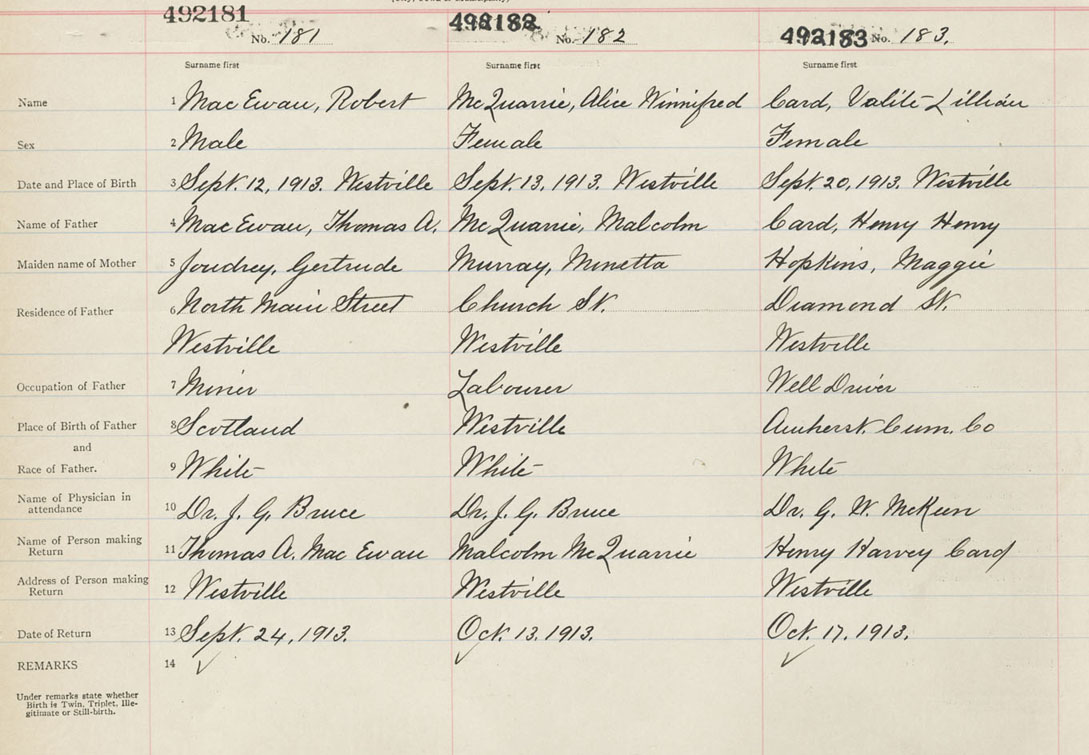 492181 492182 492183
No. 181 No. 182 No. 183.
Surname first Surname first Surname first
Name 1 Mac Ewan, Robert McQuarrie, Alice Winnifred Card, Valite Lillian
Sex 2 Male Female Female
Date and Place of Birth 3 Sept. 12, 1913. Westville Sept. 13, 1913. Westville Sept. 20, 1913. Westville
Name of Father 4 Mac Ewan, Thomas A. McQuarrie, Malcolm Card, Henry Henry
Maiden name of Mother 5 Joudrey, Gertrude Murray, Minetta Hopkins, Maggie
Residence of Father 6 North Main Street Church St. Diamond St.
Westville Westville Westville
Occupation of Father 7 Miner Labourer Well Driver
Place of Birth of Father 8 Scotland Westville Amherst Cum. Co
and
Race of Father. 9 White White White
Name of Physician in
attendance 10 Dr. J. G. Bruce Dr. J. G. Bruce Dr. G. W. McKeen
Name of Person making
Return 11 Thomas A. Mac Ewan Malcolm McQuarrie Henry Harvey Card
Address of Person making
Return 12 Westville Westville Westville
Date of Return 13 Sept. 24, 1913. Oct. 13. 1913. Oct. 17. 1913.
REMARKS 14
Under remarks state whether
Birth is Twin, Triplet, Ille-
gitimate or Still-birth.